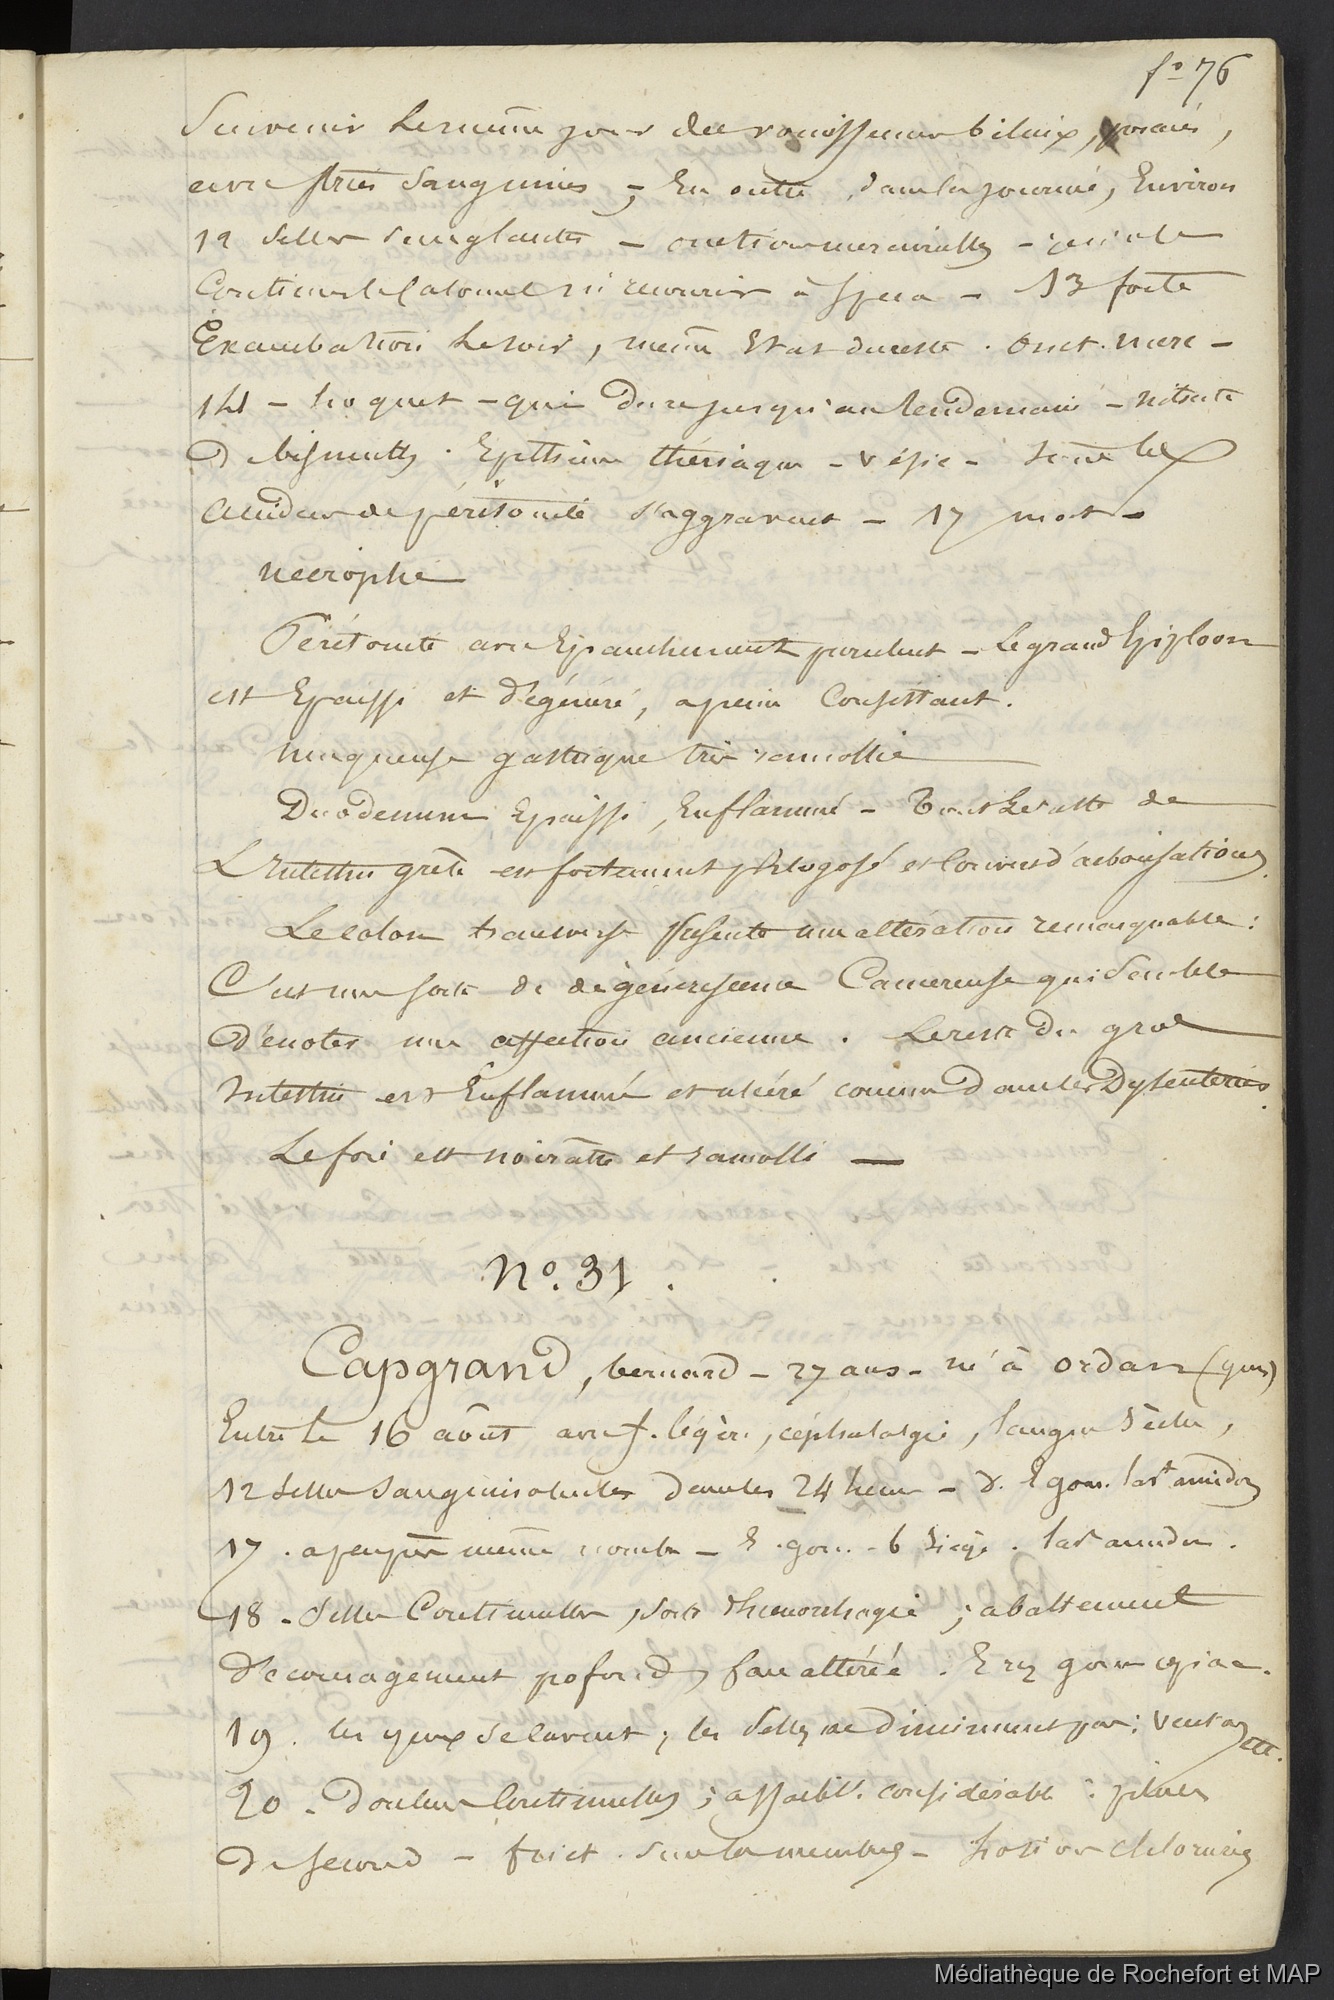 fo 76
Survenir le même jour des vomissemens bilieux, poracés,
avec stries Sanguines ; En outre, dans la journée, Environ
12 selles Sanglantes - onctions mercurielles -
Continuer le Calomel ni recourir à Ipeca - 13 forte
Exacerbation le soir, même Etat du reste . onct. merc -
14 - hoquet - qui dure jusqu'au lendemain - nitrate
D bismuth . Epithème thériaque - vésic - tous les
accidens de péritonite s'aggravent - 17 mort -
Nécropsie
Péritonite avec Epanchement purulent - Le grand Epiploon
est Epaissi et dégénéré, a peine Consistant.
Muqueuse gastrique très ramollie
Duodenum Epaissi, Enflammé - Tout le reste de
L'Intestin grêle est fortement phlogosé et Couvert d'arborisations.
Le colon transverse présente une altération remarquable :
C'est une sorte de dégénérescence Cancéreuse qui Semble
dénoter une affection ancienne . Le reste du gros
Intestin est Enflammé et ulcéré comme Dans les Dysenteries.
Le foie est noirâtre et ramolli —
No. 31.
Capgrand, bernard - 27 ans - né à ordan (gers)
Entré le 16 août avec f. légère, céphalalgie, langue sèche,
12 selles Sanguinolentes dans les 24 heures - d. E gom. lavt amidon
17 . a peu près même nombre - E . gom. - 6 siège . lavt amidon .
18 - Selles Continuelles, sorte d'hemorrhagie ; abattement
Découragement pofond, face altérée . E riz gom
19 . les yeux se cavent ; les Selles ne diminuent pas : Ventouses
20 - Douleurs Continuelles ; affaibt. considérable : pilules
De Second - frict . Sur les membres - Potion Chlorurée
Médiathèque de Rochefort et MAP